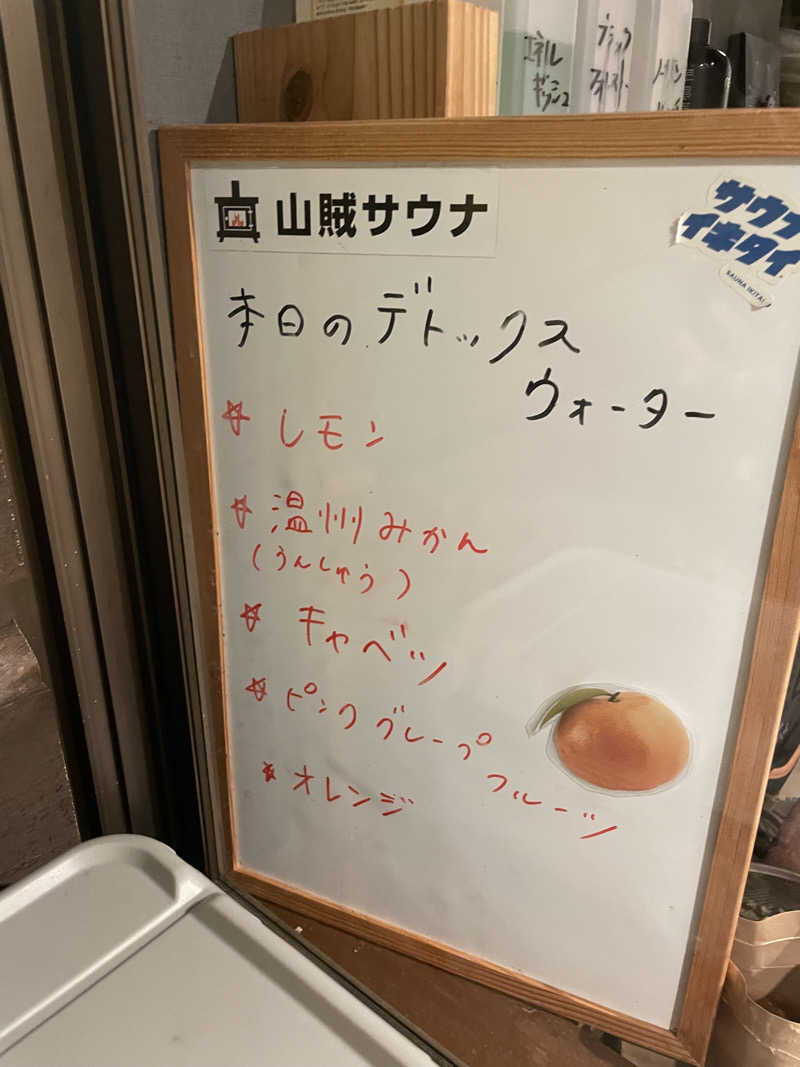 エネル
ギッシュ
ブラック
フォレスト
山賊サウナ
サウナ
イキタイ
SAUNA IKITAI
本日のデトックス
ウォーター
☆ レモン
☆ 温州みかん
(うんしゅう)
☆ キャベツ
☆ ピンクグレープ
フルーツ
☆ オレンジ